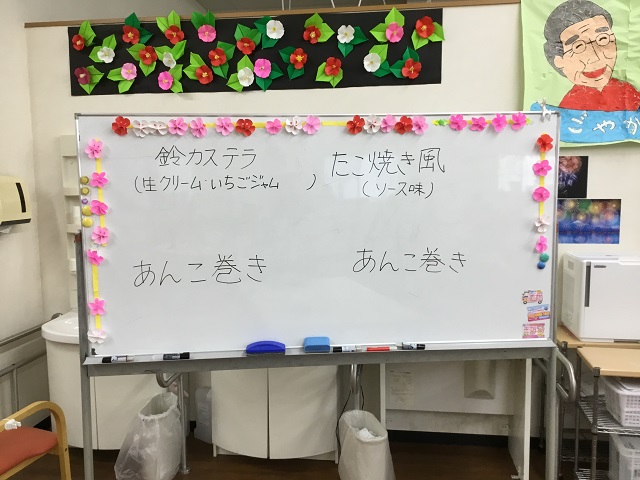 鈴カステラ
(生クリーム・いちごジャム )
たこ焼き風
(ソース味)
あんこ巻き
あんこ巻き
ごやか